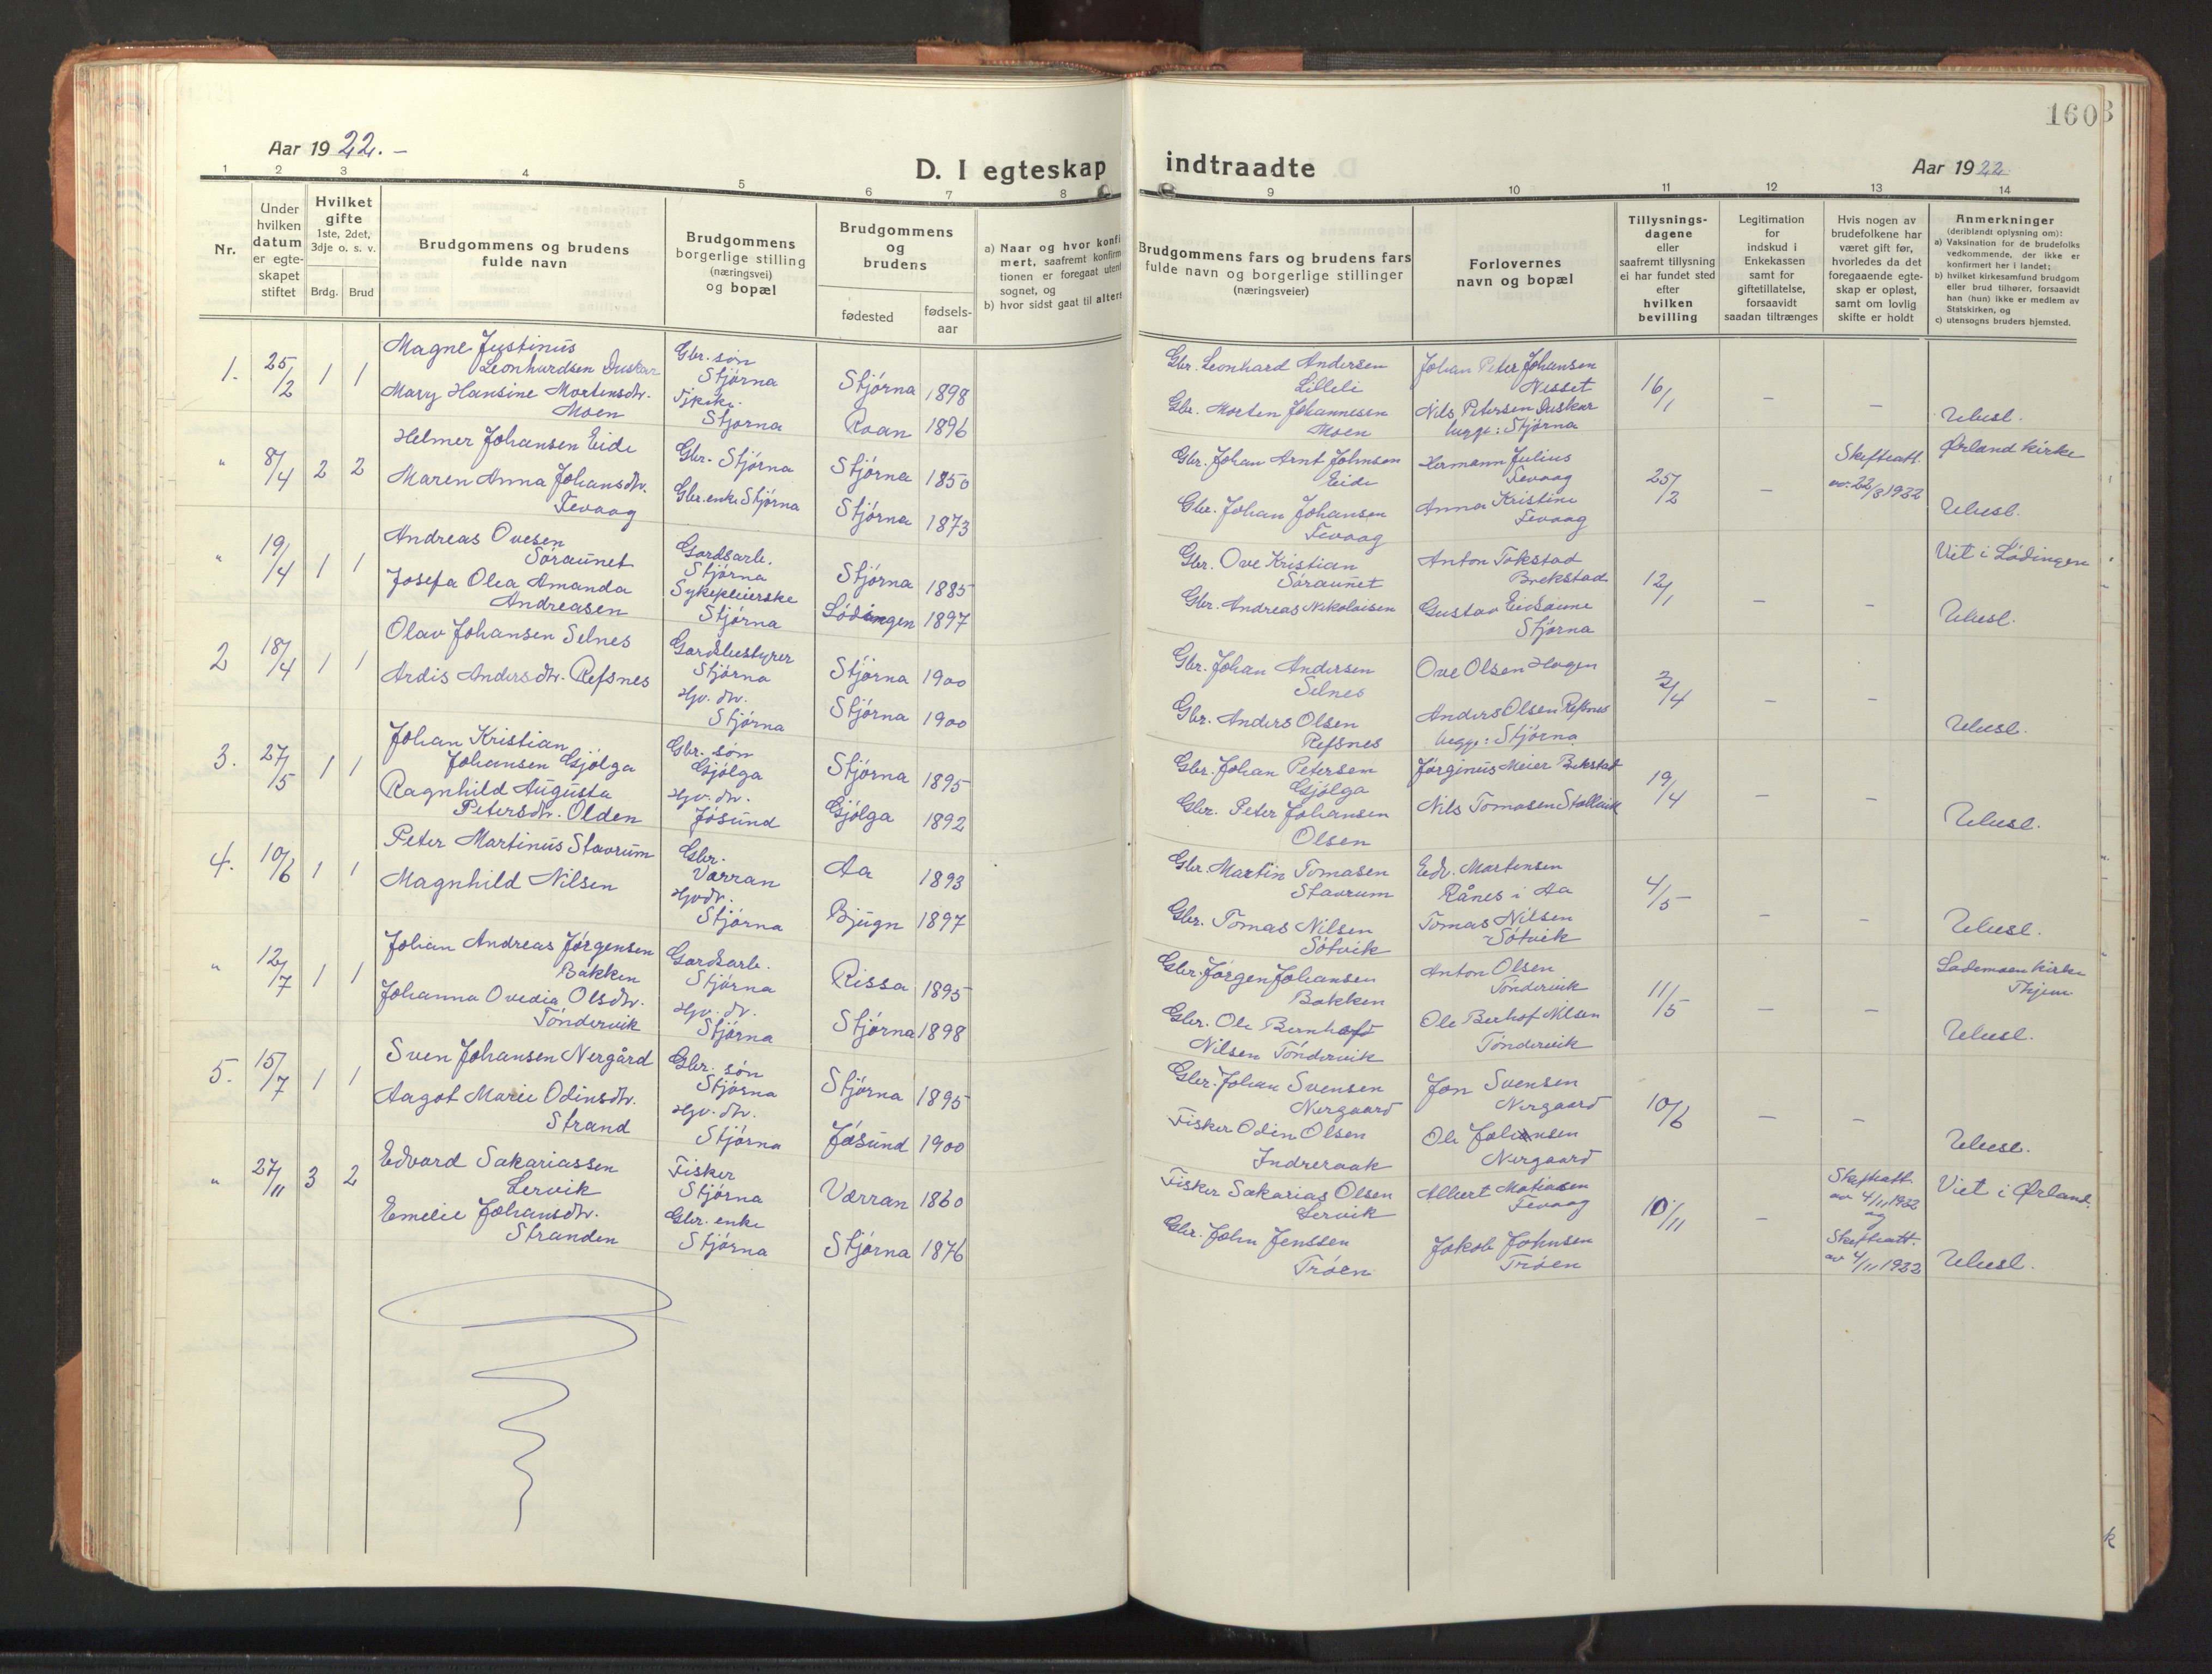 1603
Aar 1922.-
D. I egteskap indtraadte
Aar 1922
1 2 3 4 5 6 7 8 9 10 11 12 13 14
Nr.
Under
hvilken
datum
er egte-
skapet
stiftet
Hvilket
gifte
1ste, 2det,
3dje o. s. v.
Brdg. Brud
Brudgommens og brudens
fulde navn
Brudgommens
borgerlige stilling
(næringsvei)
og bopæl
Brudgommens
og
brudens
fødested
fødsels-
aar
a) Naar og hvor konfi
mert, saafremt konfirm
tionen er foregaat utenf
sognet, og
b) hvor sidst gaat til alters
Brudgommens fars og brudens fars
fulde navn og borgerlige stillinger
(næringsveier)
Forlovernes
navn og bopæl
Tillysnings-
dagene
eller
saafremt tillysning
ei har fundet sted
efter
hvilken
bevilling
Legitimation
for
indskud i
Enkekassen
samt for
giftetillatelse,
forsaavidt
saadan tiltrænges
Hvis nogen av
brudefolkene har
været gift før,
hvorledes da det
foregaaende egte-
skap er opløst,
samt om lovlig
skifte er holdt
Anmerkninger
(deriblandt oplysning om):
a) Vaksination for de brudefolks
vedkommende, der ikke er
konfirmert her i landet;
b) hvilket kirkesamfund brudgom
eller brud tilhører, forsaavidt
han (hun) ikke er medlem av
Statskirken, og
c) utensogns bruders hjemsted.
1. 25/2 1 1
Magne Justinus
Leonhardsen Duskar
Mary Hansine Mortensdtr.
Moen
Gbr. søn
Stjørna
Stjørna
Stjørna 1898
Roan 1896
Gbr. Leonhard Andersen
Lilleli
Gbr. Morten Johannesen
Moen
Johan Peter Johansen
Nesset
Nils Petersen Duskar
begge: Stjørna
16/1 - -
Ubesl.
" 8/4 2 2
Helmer Johansen Eide
Maren Anna Johansdtr.
Fevaag
Gbr. Stjørna
Gbr. enke Stjørna
Stjørna 1850
Stjørna 1873
Gbr. Johan Arnt Johnsen
Eide
Gbr. Johan Johansen
Fevaag
Hermann Julius
Fevaag
Anna Kristine
Fevaag
25/2 -
Skifteatt.
av. 22/3 1922
Ørland kirke
Ubesl.
" 19/4 1 1
Andreas Ovesen
Søraunet
Josefa Olea Amanda
Andreasen
Gardsarb.
Stjørna
Sykepleierske
Stjørna
Stjørna 1885
Lødingen 1897
Gbr. Ove Kristian
Søraunet
Gbr. Andreas Nikolaisen
Anton Tokstad
Brekstad
Gustav Eidsaune
Stjørna
12/1 - -
Viet i Lødingen
Ubesl.
2 18/4 1 1
Olav Johansen Selnes
Ardis Andersdtr. Refsnes
Gardsbestyrer
Stjørna
Hjv. dtr.
Stjørna
Stjørna 1900
Stjørna 1900
Gbr. Johan Andersen
Selnes
Gbr. Anders Olsen
Refsnes
Ove Olsen Hagen
Anders Olsen Refsnes
begge: Stjørna
/4 - -
Ubesl.
3. 27/5 1 1
Johan Kristian
Johansen Gjølga
Ragnhild Augusta
Petersdtr. Olden
Gbr. søn
Gjølga
Hjv. dtr.
Jøsund
Stjørna 1895
Gjølga 1892
Gbr. Johan Petersen
Gjølga
Gbr. Peter Johansen
Olsen
Jørginus Meier Bekstad
Nils Tomasen Stallvik
19/4 - -
Ubesl.
4. 10/6 1 1
Peter Martinus Stavrum
Magnhild Nilsen
Gbr.
Værran
Hjvdtr.
Stjørna
Aa 1893
Bjugn 1897
Gbr. Martin Tomasen
Stavrum
Gbr. Tomas Nilsen
Søtvik
Edv. Mortensen
Rånes i Aa
Tomas Nilsen
Søtvik
4/5 - -
Ubesl.
" 12/7 1 1
Johan Andreas Jørgensen
Bakken
Johanna Ovedia Olsdtr.
Tøndervik
Gardsarb.
Stjørna
Hjv. dtr.
Stjørna
Rissa 1895
Stjørna 1898
Gbr. Jørgen Johansen
Bakken
Gbr. Ole Bernhoft
Nilsen Tøndervik
Anton Olsen
Tøndervik
Ole Berhof Nilsen
Tøndervik
11/5 - -
Lademoen kirke
Thjem.
Ubesl.
5. 15/7 1 1
Sven Johansen Nergård
Aagot Marie Odinsdtr.
Strand
Gbr. søn
Stjørna
Hjv. dtr.
Stjørna
Stjørna 1895
Jøsund 1900
Gbr. Johan Svensen
Nergaard
Fisker Odin Olsen
Indreraak
Jon Svensen
Nergaard
Ole Johansen
Nergaard
10/6 - -
Ubesl.
" 27/11 3 2
Edvard Sakariassen
Lervik
Emelie Johansdtr.
Stranden
Fisker
Stjørna
Gbr. enke
Stjørna
Værran 1860
Stjørna 1876
Fisker Sakarias Olsen
Lervik
Gbr. John Jenssen
Trøen
Albert Matiasen
Fevaag
Jakob Johnsen
Trøen
10/11 -
Skifteatt.
av 4/11 1922
og
Skifteatt.
av 4/11 1922
Viet i Ørland.
Ubesl.